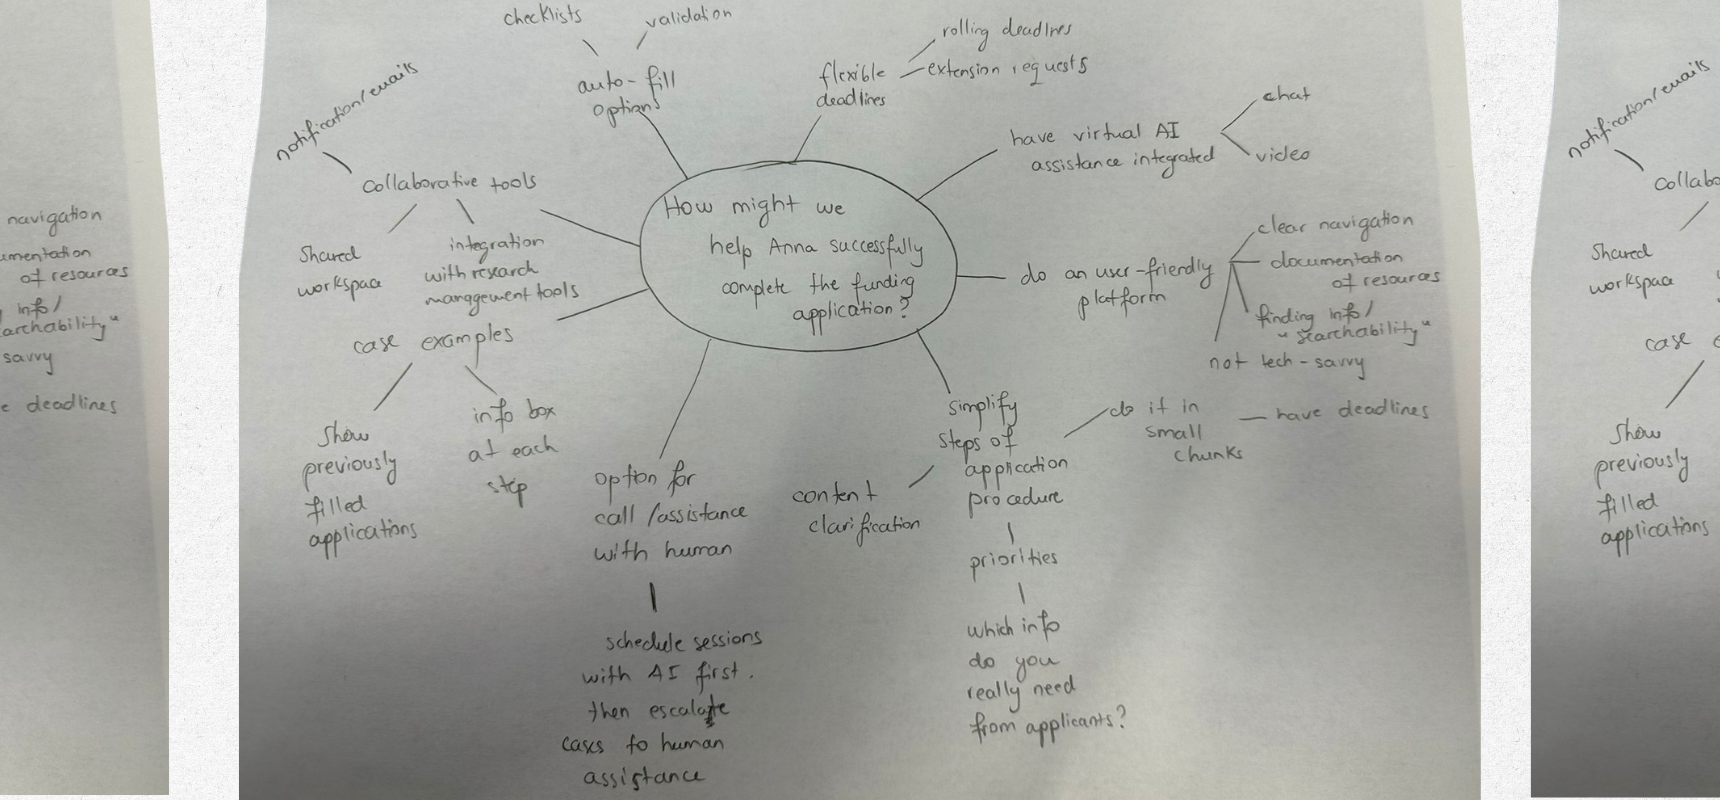 navigation
umentation
of resources
info/
archability"
savvy
e deadlines
checklists
validation
auto-fill
options
notification/emails
collaborative tools
Shared
workspace
integration
with research
management tools
flexible
deadlines
rolling deadlines
extension requests
have virtual AI
assistance integrated
chat
video
How might we
help Anna successfully
complete the funding
application?
do an user-friendly
platform
clear navigation
documentation
of resources
finding info/
"searchability"
not tech-savvy
case examples
show
previously
filled
applications
info box
at each
step
option for
call/assistance
with human
schedule sessions
with AI first.
then escalate
cases to human
assistance
simplify
steps of
application
procedure
do it in
small
chunks
have deadlines
content
clarification
priorities
which info
do you
really need
from applicants?
notification/emails
collabo
Shared
workspace
case e
show
previously
filled
applications